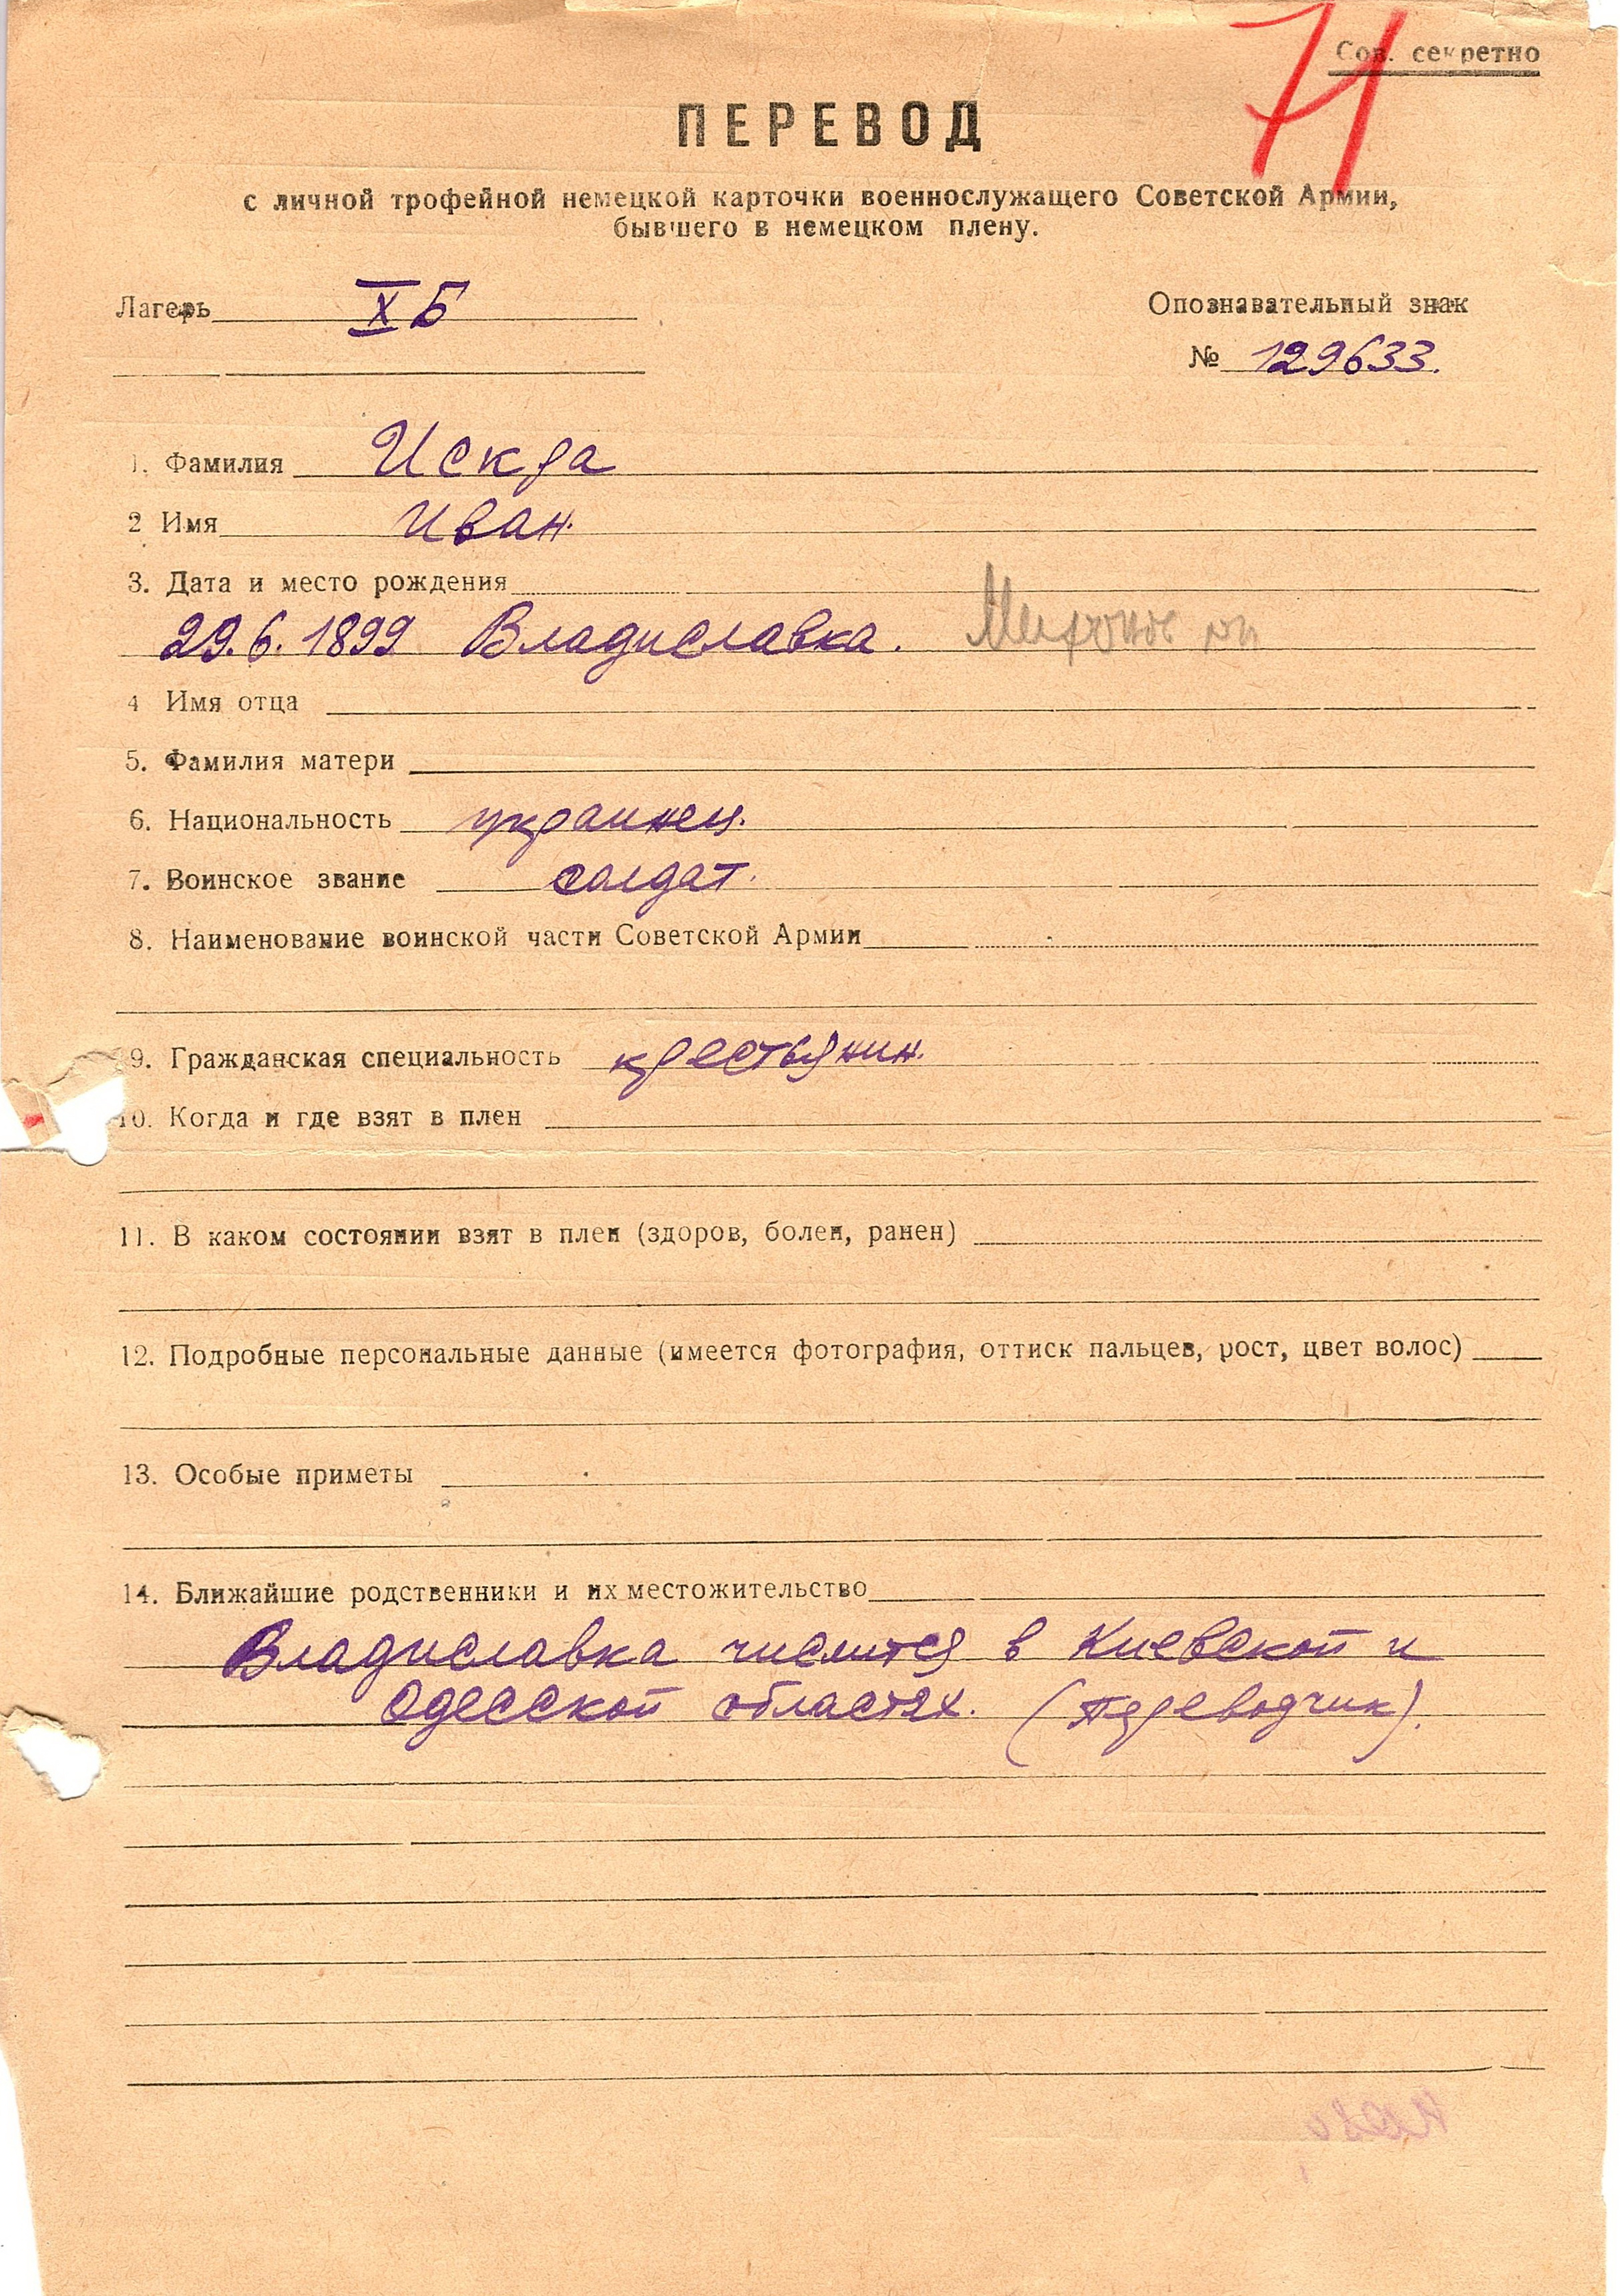 71
Сов. секретно
ПЕРЕВОД
с личной трофейной немецкой карточки военнослужащего Советской Армии,
бывшего в немецком плену.
Лагерь X Б
Опознавательный знак
№ 129633.
1. Фамилия Искра
2 Имя Иван.
3. Дата и место рождения
29.6.1899 Владиславка.
4 Имя отца
5. Фамилия матери
6. Национальность украинец.
7. Воинское звание солдат.
8. Наименование воинской части Советской Армии
9. Гражданская специальность крестьянин.
10. Когда и где взят в плен
11. В каком состоянии взят в плен (здоров, болен, ранен)
12. Подробные персональные данные (имеется фотография, оттиск пальцев, рост, цвет волос)
13. Особые приметы
14. Ближайшие родственники и их местожительство
Владиславка числится в Киевской и
Одесской областях. (Переводчик).